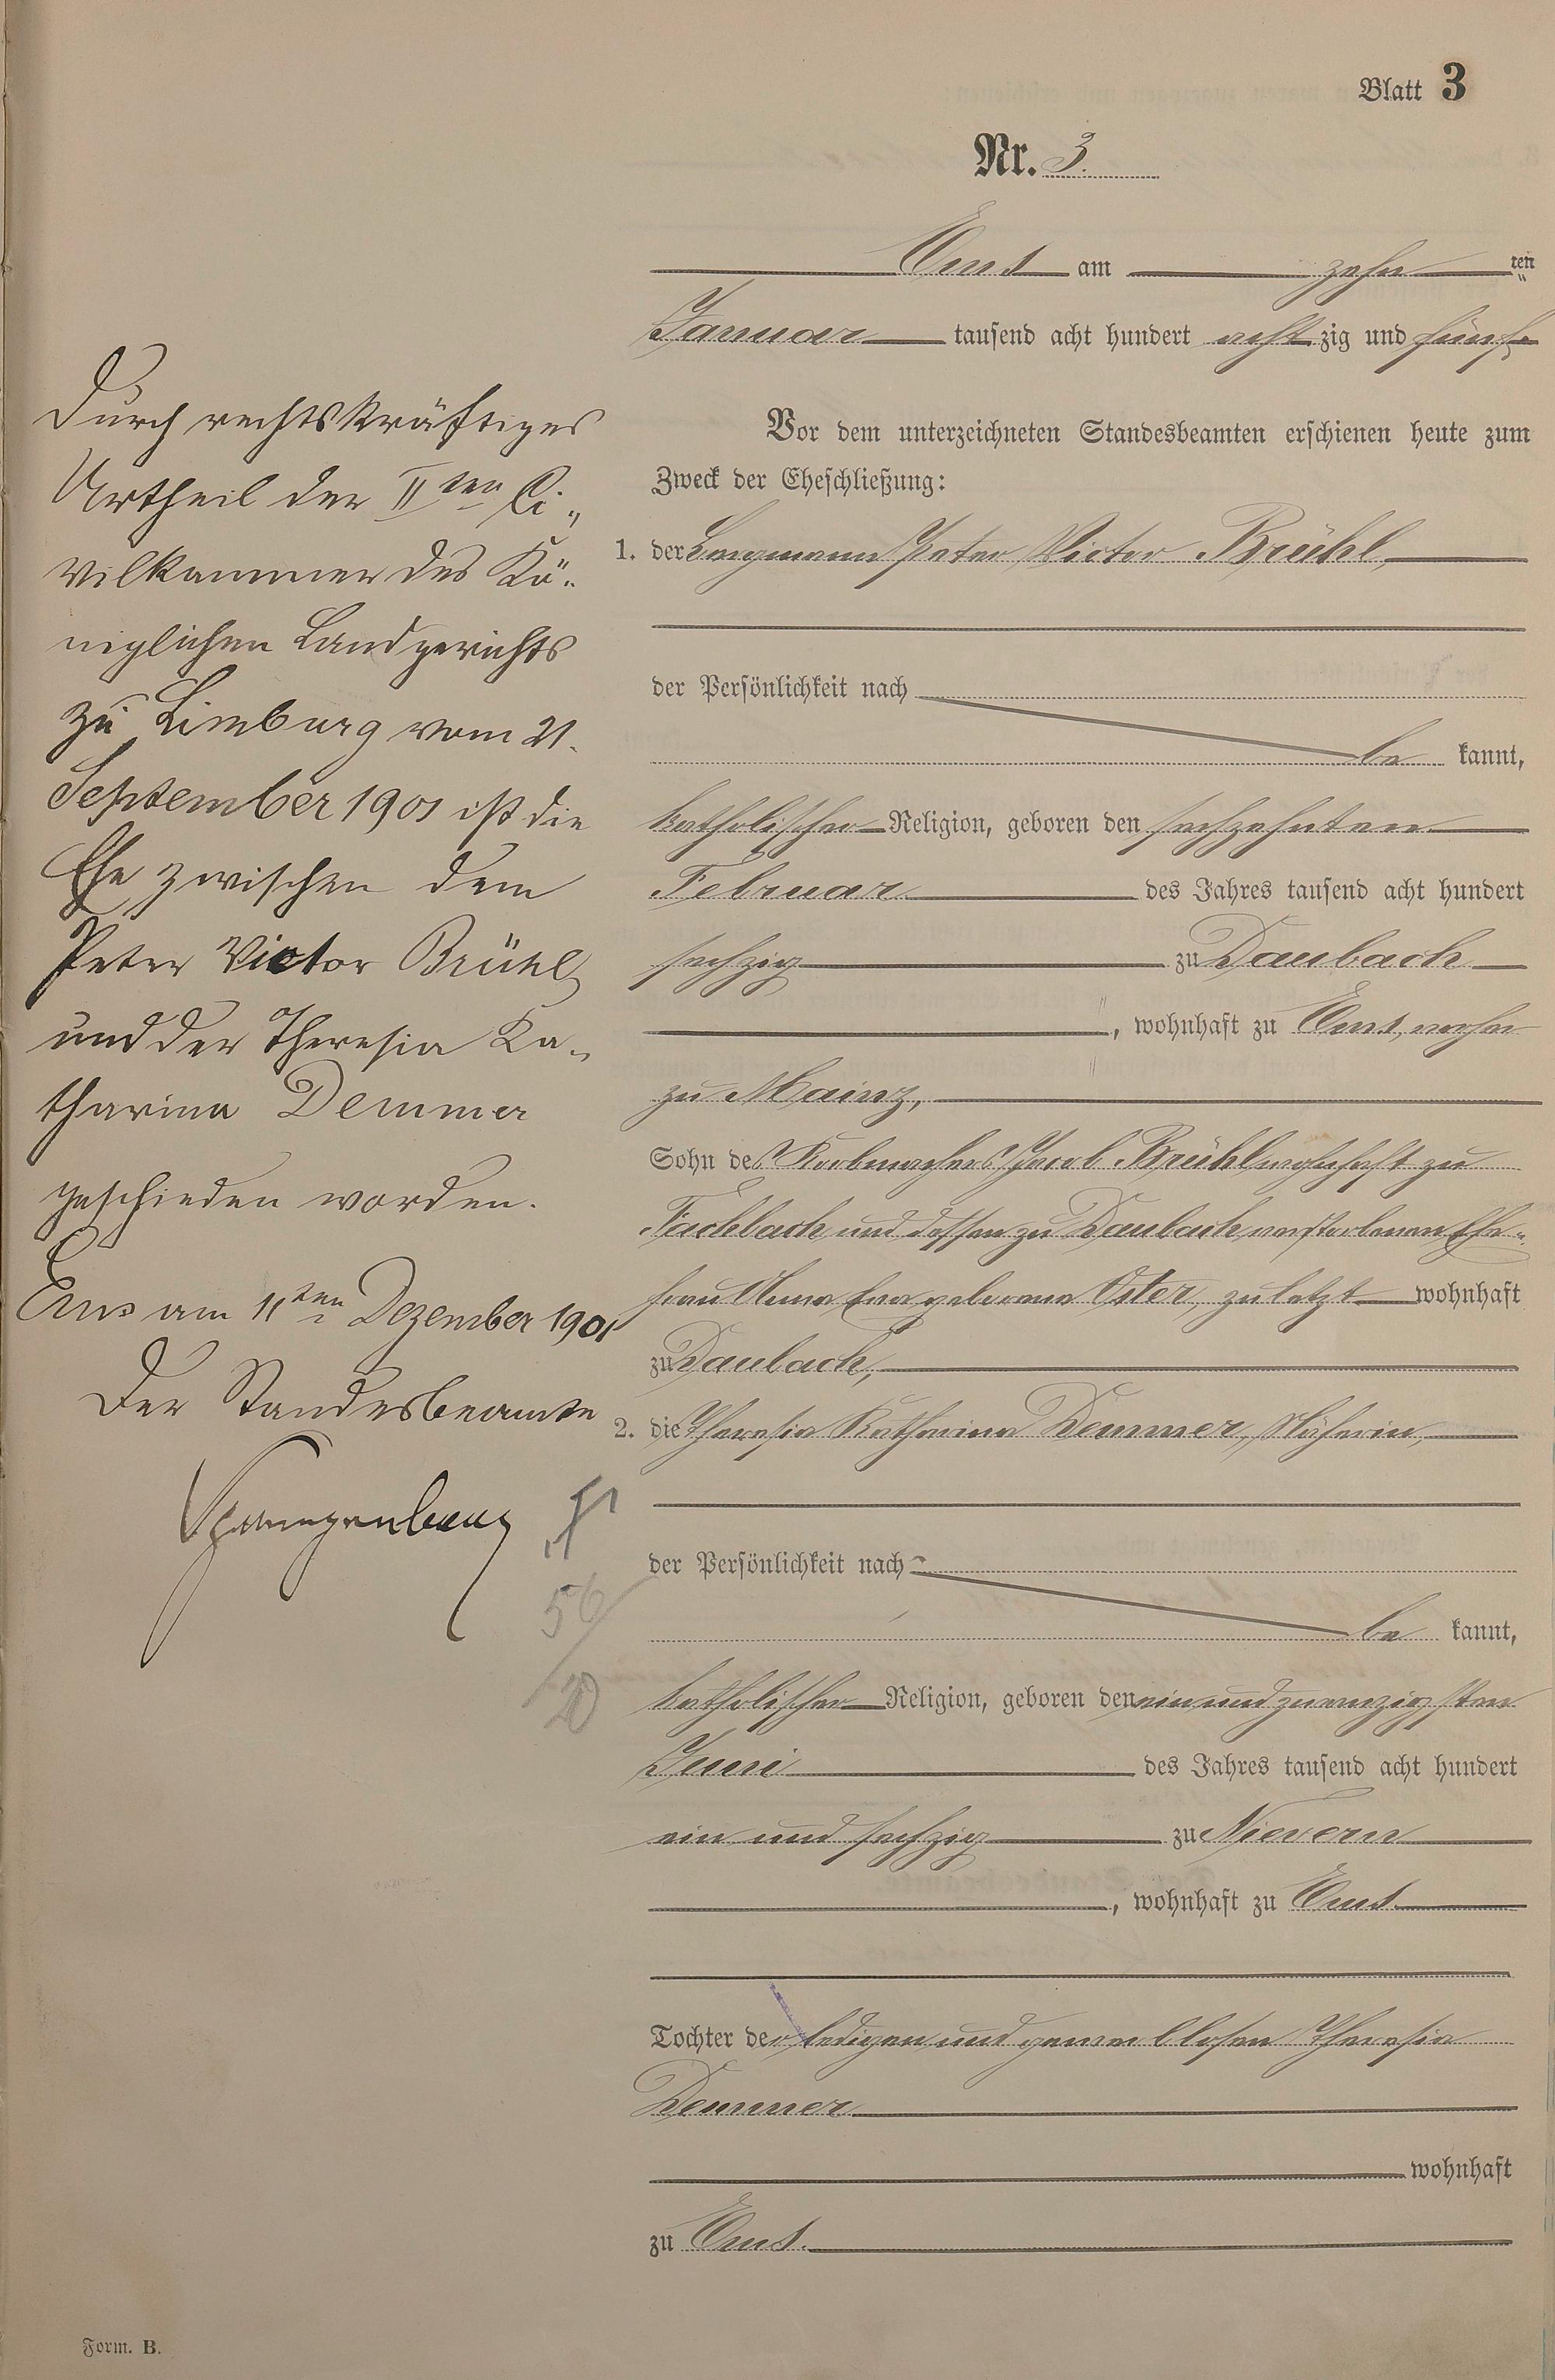 Blatt 3
Nr. 3.
Ems am zehn ten
Januar tausend acht hundert acht zig und fünf.
Vor dem unterzeichneten Standesbeamten erschienen heute zum
Zweck der Eheschließung:
1. der Bergmann Peter Victor Brühl,
der Persönlichkeit nach
be kannt,
katholischer Religion, geboren den sechzehnten
Februar des Jahres tausend acht hundert
sechzig zu Daubach
, wohnhaft zu Ems, vorher
zu Mainz,
Sohn des Korbmachers Jacob Brühl wohnhaft zu
Fachbach und dessen zu Daubach verstorbenen Ehe-
frau Anna Eva geborene Oster, zuletzt wohnhaft
zu Daubach,
2. die Theresia Katharina Demmer, Näherin,
der Persönlichkeit nach
be kannt,
katholischer Religion, geboren den ein und zwanzigsten
Juni des Jahres tausend acht hundert
ein und sechzig zu Nievern
, wohnhaft zu Ems
Tochter der ledigen und gewerblosen Theresia
Demmer
wohnhaft
zu Ems.
Durch rechtskräftiges
Urtheil der II ten Ci-
vilkammer des Kö-
niglichen Landgerichts
zu Limburg vom 21.
September 1901 ist die
Ehe zwischen dem
Peter Victor Brühl
und der Theresia Ka-
tharina Demmer
geschieden worden.
Ems am 11ten Dezember 1901
Der Standesbeamte
Spangenberg
56
20
Form. B.